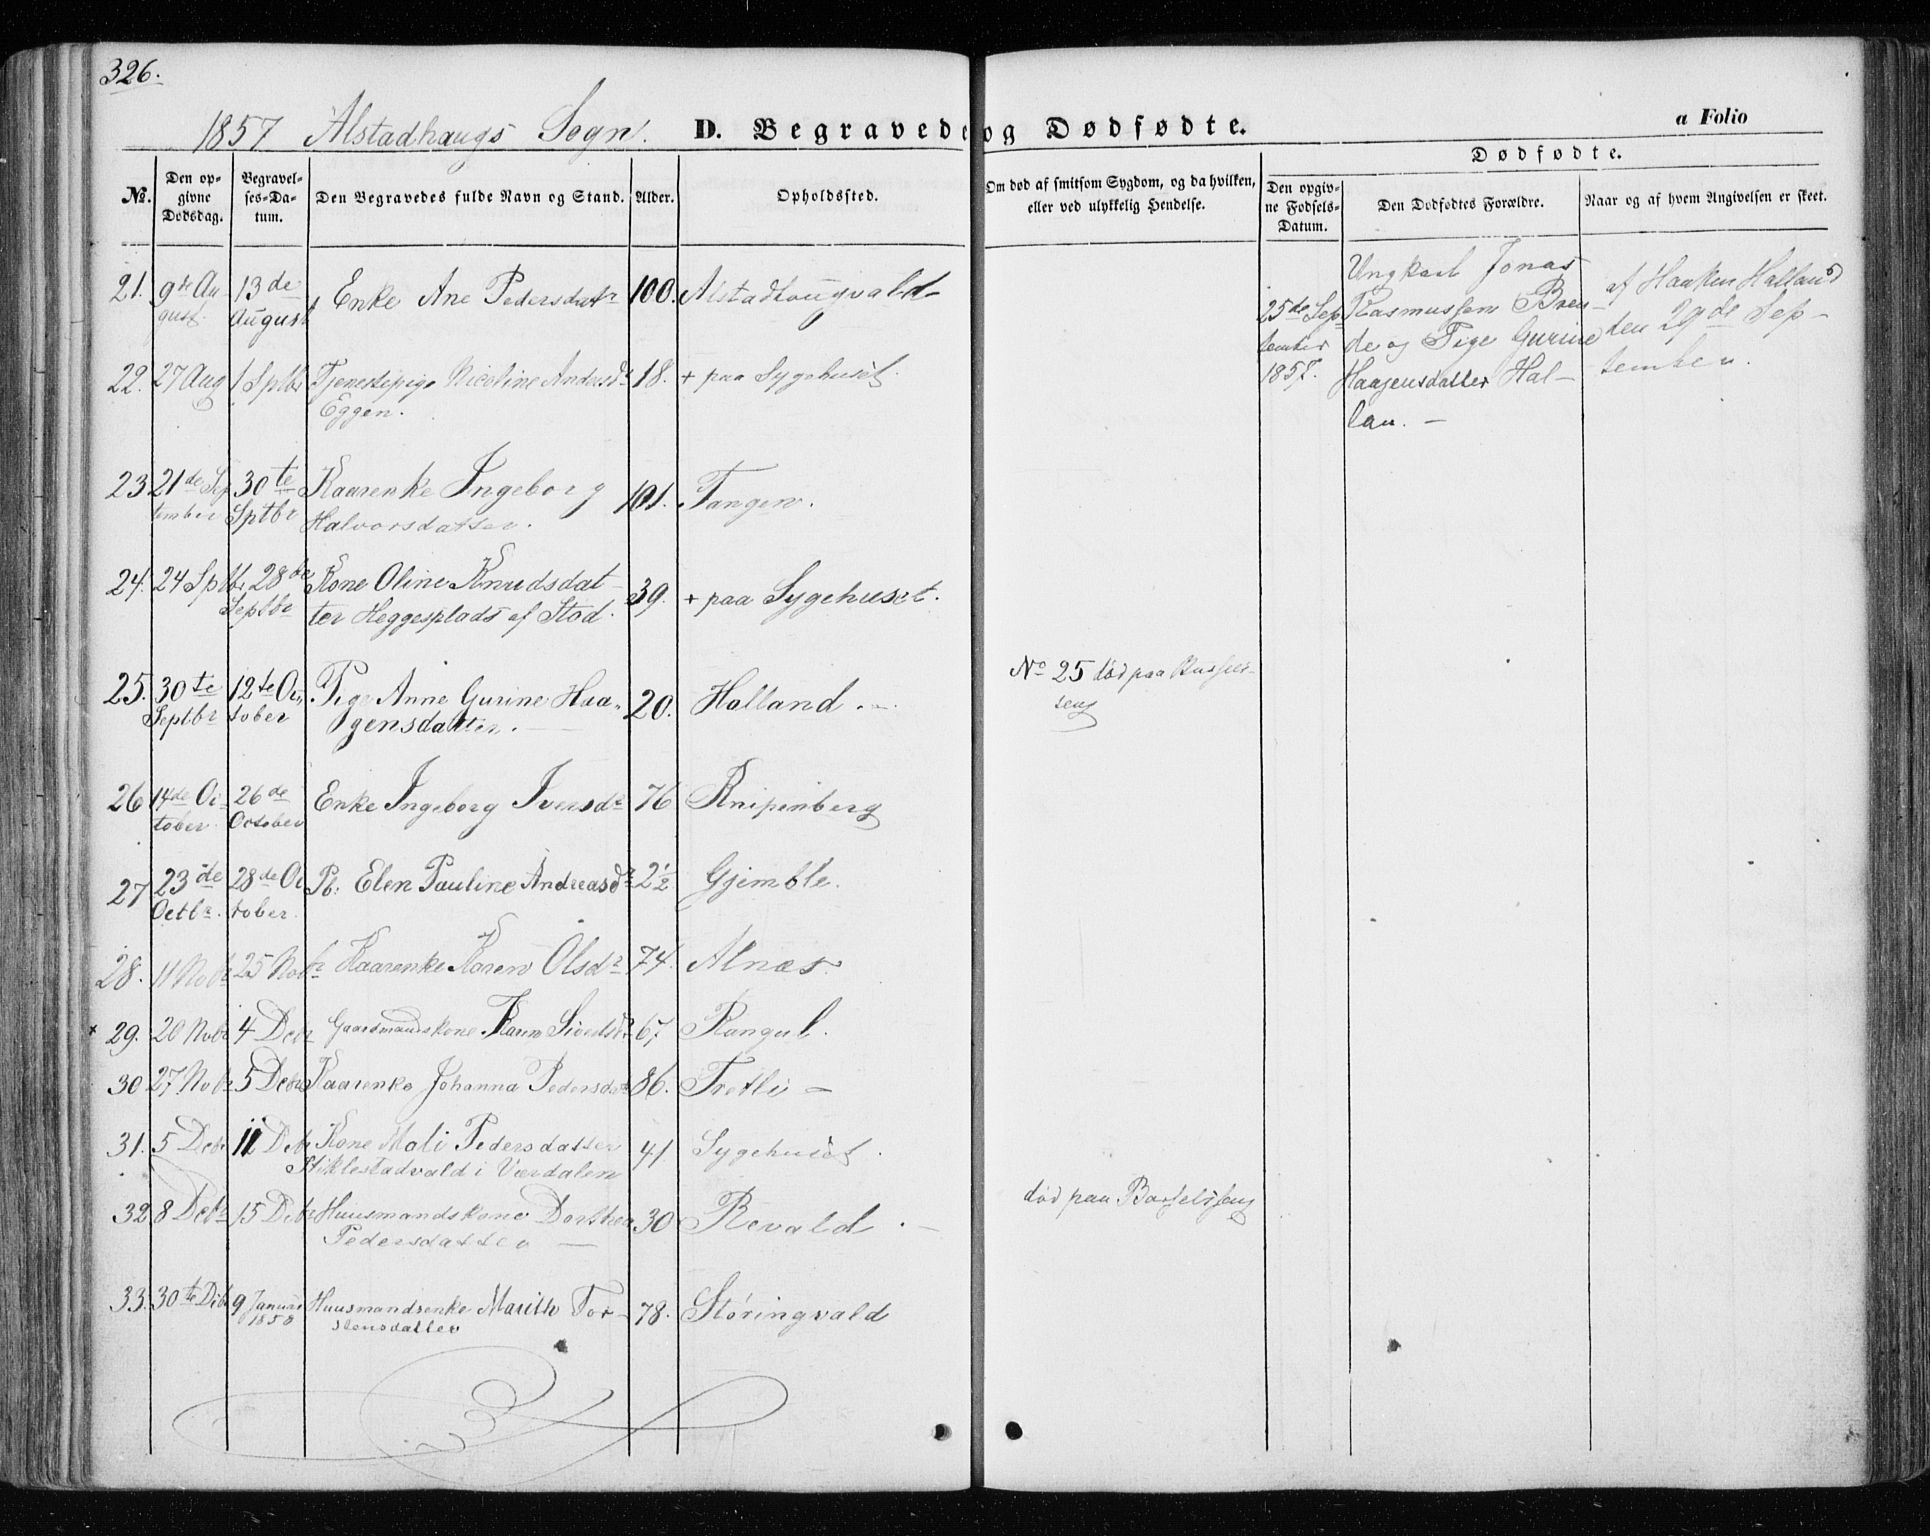 326.
1857 Alstadhaugs Sogn. D. Begravede og Dødfødte. a Folio
Dødfødte.
No. Den opgivne Dødsdag. Begravelses-Datum. Den Begravedes fulde Navn og Stand. Alder. Opholdssted. Om død af smitsom Sygdom, og da hvilken, eller ved ulykkelig Hendelse. Den opgivne Fødsels-Datum. Den Dødfødtes Forældre. Naar og af hvem Angivelsen er skeet.
21. 9de August. 13de August Enke Ane Pedersdatr 100. Alstadhougvald
22. 27 Aug 1 Sptbr Tjenestepige Nicoline Andersdr 18. + paa Sygehuset.
Eggen.
23 21de September 30te Sptbr Kaarenke Ingeborg 101. Tangen.
Halvorsdatter.
24. 24 Sptbr 28de Septbr Kone Oline Knudsdat 39. + paa Sygehuset.
ter Heggesplads af Stod.
25. 30te Septbr 12te October Pige Anne Gurine Haa- 20. Halland.
gensdatter.
26 14de October 26de October Enke Ingeborg Iversdr 76 Knipenberg
27 23de Octbr. 28de October. Pb: Elen Pauline Andreasdr 2½ Gjemble.
28. 11 Nobr 25 Nobr Kaarenke Karen Olsdr 74. Alnæs.
× 29. 20 Nobr 4 Debr Gaardmandskone Karen Sivertsdr 67. Rangul.
30 27 Nobr 5 Debr Kaarenke Johanna Pedersdatr 86. Tretli –
31. 5 Debr 11 Debr Kone Mali Pedersdatter 41 Sygehuset.
Stiklestadvald i Værdalen
32 8 Debr 15 Debr Huusmandskone Dorthea 30 Revald. –
Pedersdatter –
33. 30te Debr 9 Januar 1858 Huusmandsenke Marith Tor- 78. Støringvald
stensdatter
No 25 død paa Barsels-
seng
død paa Barselseng
25de September 1857.
Ungkarl Jonas
Rasmussen Bren-
de og Pige Gurine
Haagensdatter Hal-
lan. –
af Haaken Halland
den 29de Sep-
tember.